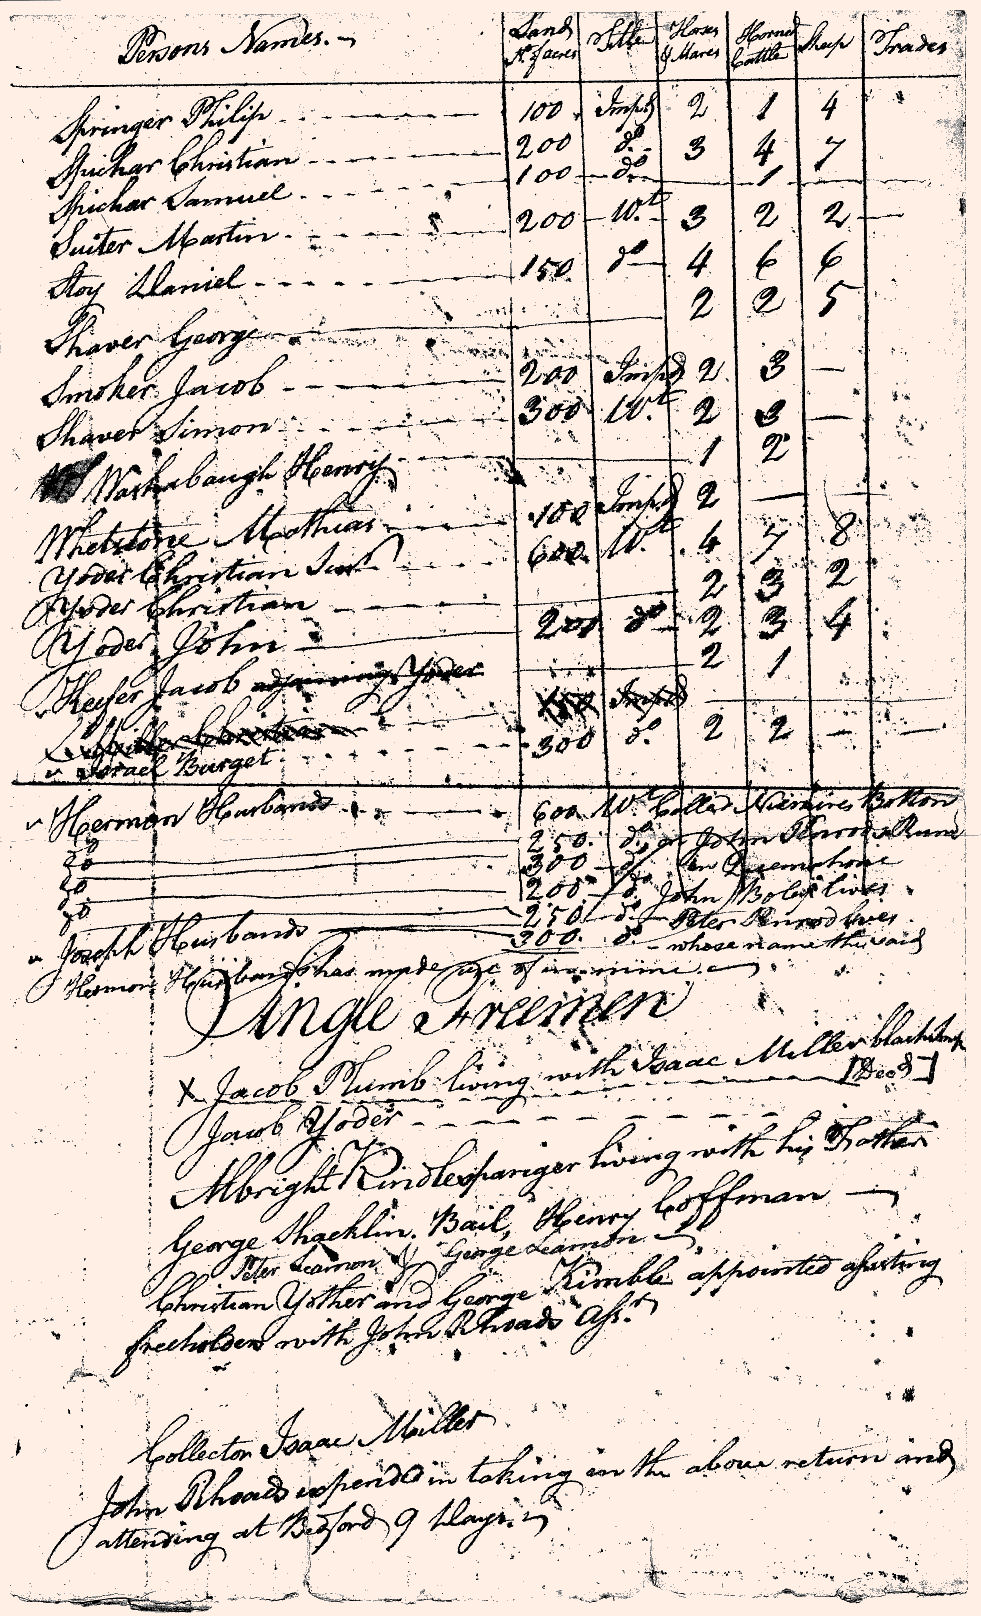 Persons Names. Land No. of acres Title Horses & Mares Horned Cattle Sheep Trades
Springer Philip 100 Impd 2 1 4
Spichar Christian 200 do. 3 4 7
Spichar Samuel 100 do. 1
Suiter Martin 200 Wt. 3 2 2 —
Stoy Daniel 150 do 4 6 6
Shaver George 2 2 5
Smoker Jacob 200 Impd 2 3 —
Shaver Simon 300 Wt. 2 3 —
Washabaugh Henry 1 2
Whetstone Mathias 100 Impd 2 —
Yoder Christian Junr 600 Wt. 4 7 8
Yoder Christian 2 3 2
Yoder John 200 do 2 3 4
Keefer Jacob adjoining Yoder 2 1
Miller Christian 150 Impd
Israel Burget 300 do. 2 2 — —
Herman Husbands 600 Wt. Called Bottom
do 250. do. on John Penrods Run
do 300 do. on
do 200 do. John lives
do 250 do. Peter Penrod lives
Joseph Husbands 300. do. whose name the said
Herman Husbands has made use of in mine
Single Freemen
X Jacob Plumb living with Isaac Miller blacksmith
[Deed]
Jacob Yoder
Albright Kindlespariger living with his Father
George Shacklin. Bail, Henry Coffman —
Peter Leamon & George Leamon
Christian Yother and George Kimble appointed assisting
freeholders with John Rhoads Assr.
Collector Isaac Miller
John Rhoads expended in taking in the above return and
attending at Bedford 9 Days.